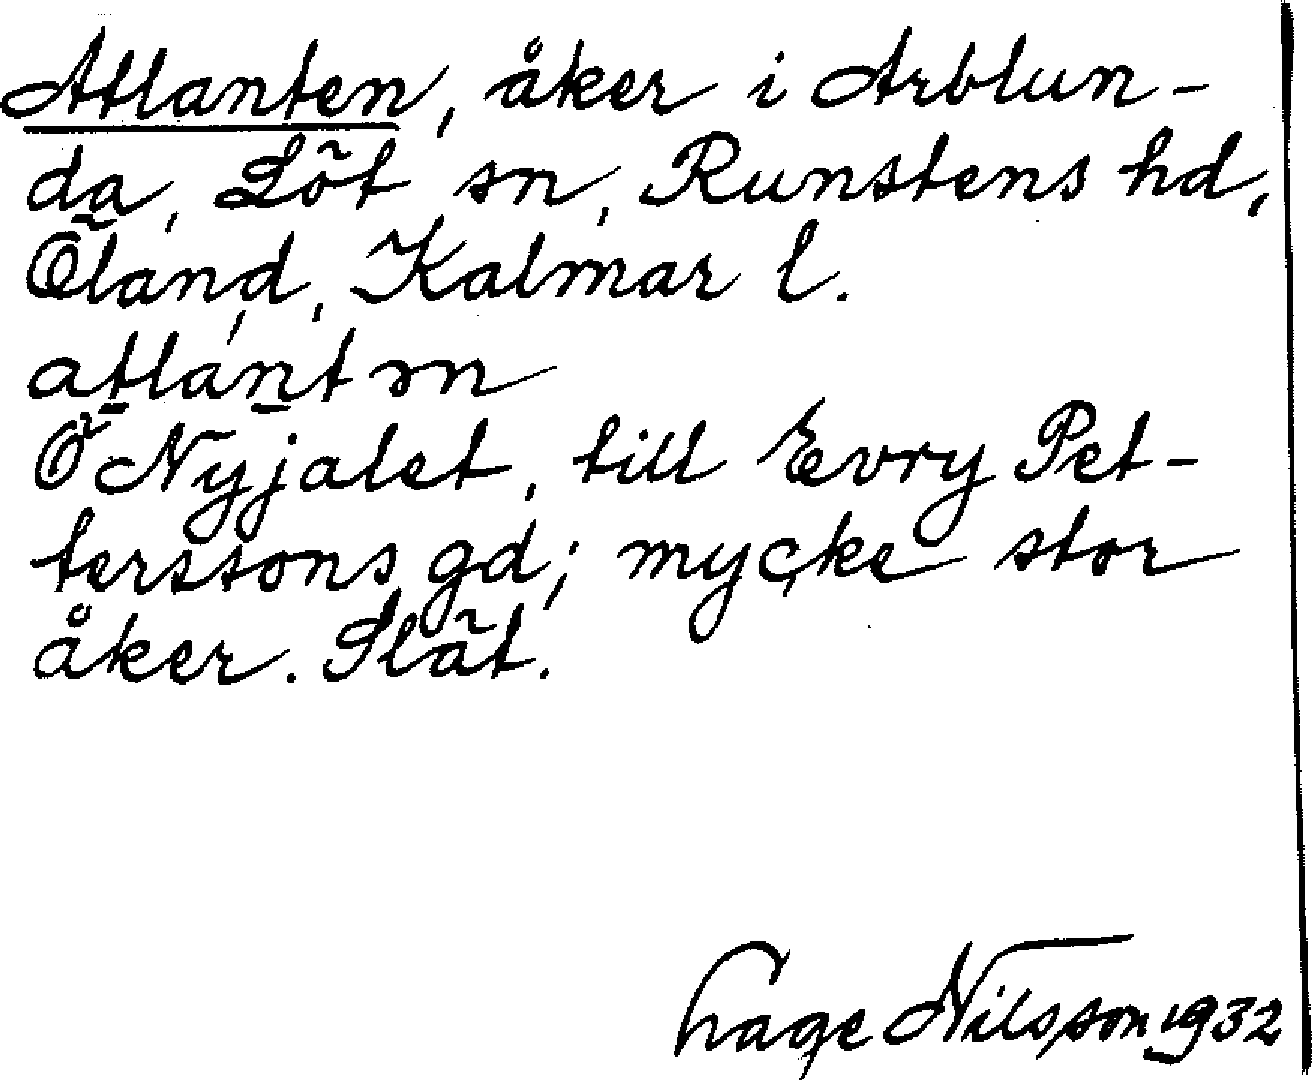 Atlanten, åker i Arblun-
da, Löt sn, Runstens hd,
Öland, Kalmar l.
atlántən
Ö Nyjalet, till Evry Pet-
terssons gd; mycke stor
åker. Slät.
Hage Nilsson 1932